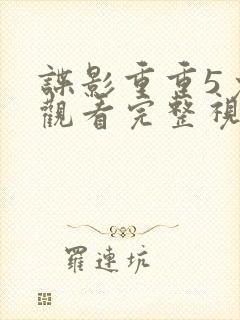 諜影重重5
觀看完整視
羅連坑